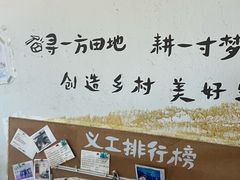 留寻一方田地 耕一寸梦
创造乡村美好
义工排行榜